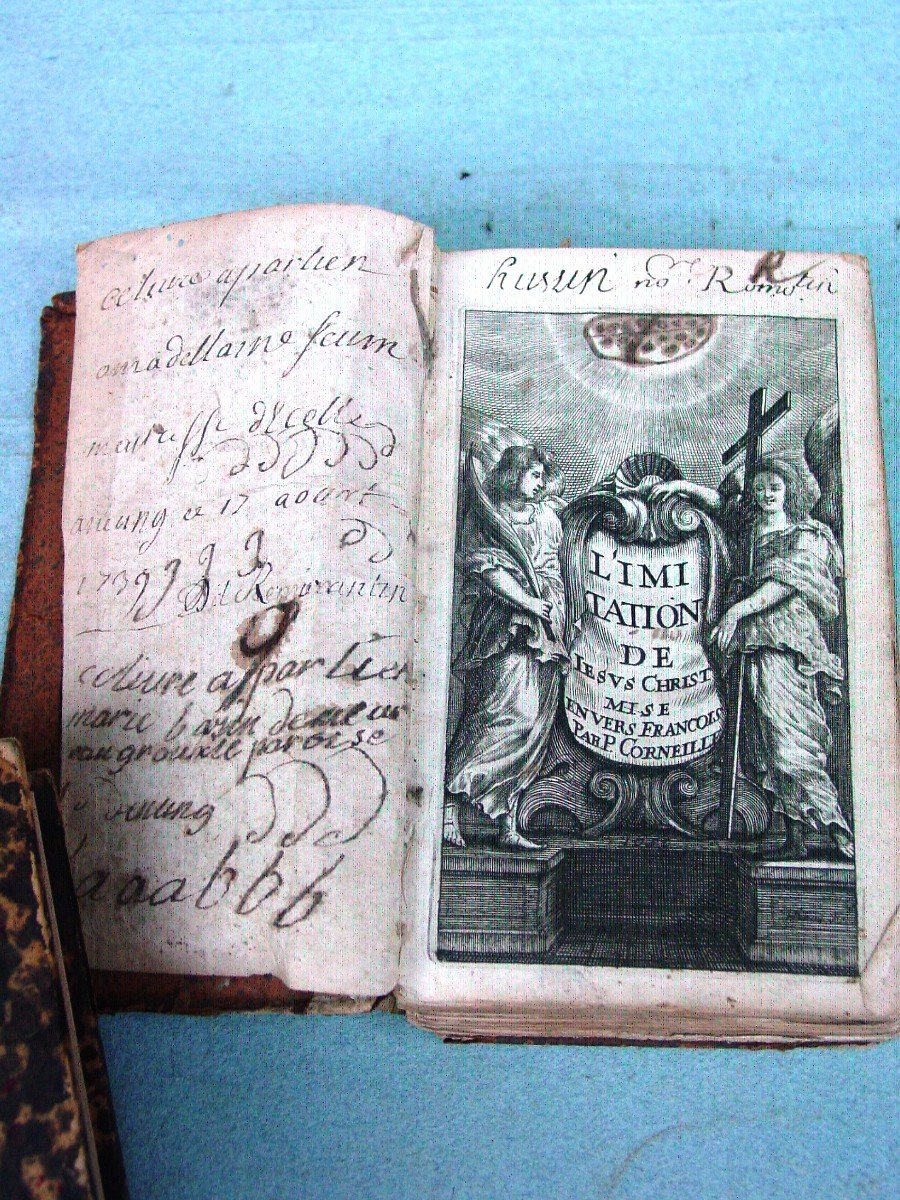 ce livre apartien
a madellaine
maitresse decolle
ce 17 aoart
1739
Dit Remorantin
ce livre appartien
marie demeur
paroise
aaabbb
husun no. R
L'IMI
TATION
DE
IESVS CHRIST
MISE
EN VERS FRANCOIS
PAR P CORNEILLE